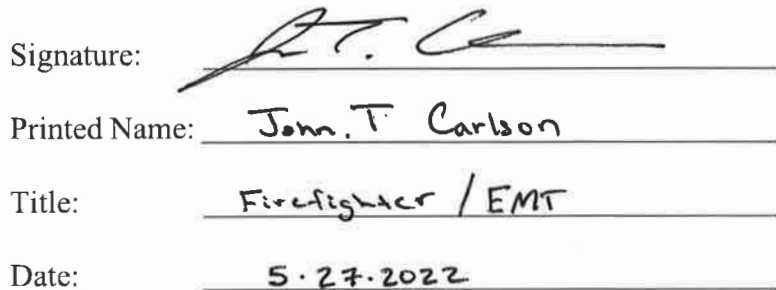 Signature: J. T. C
Printed Name: John. T Carlson
Title: Firefighter / EMT
Date: 5.27.2022